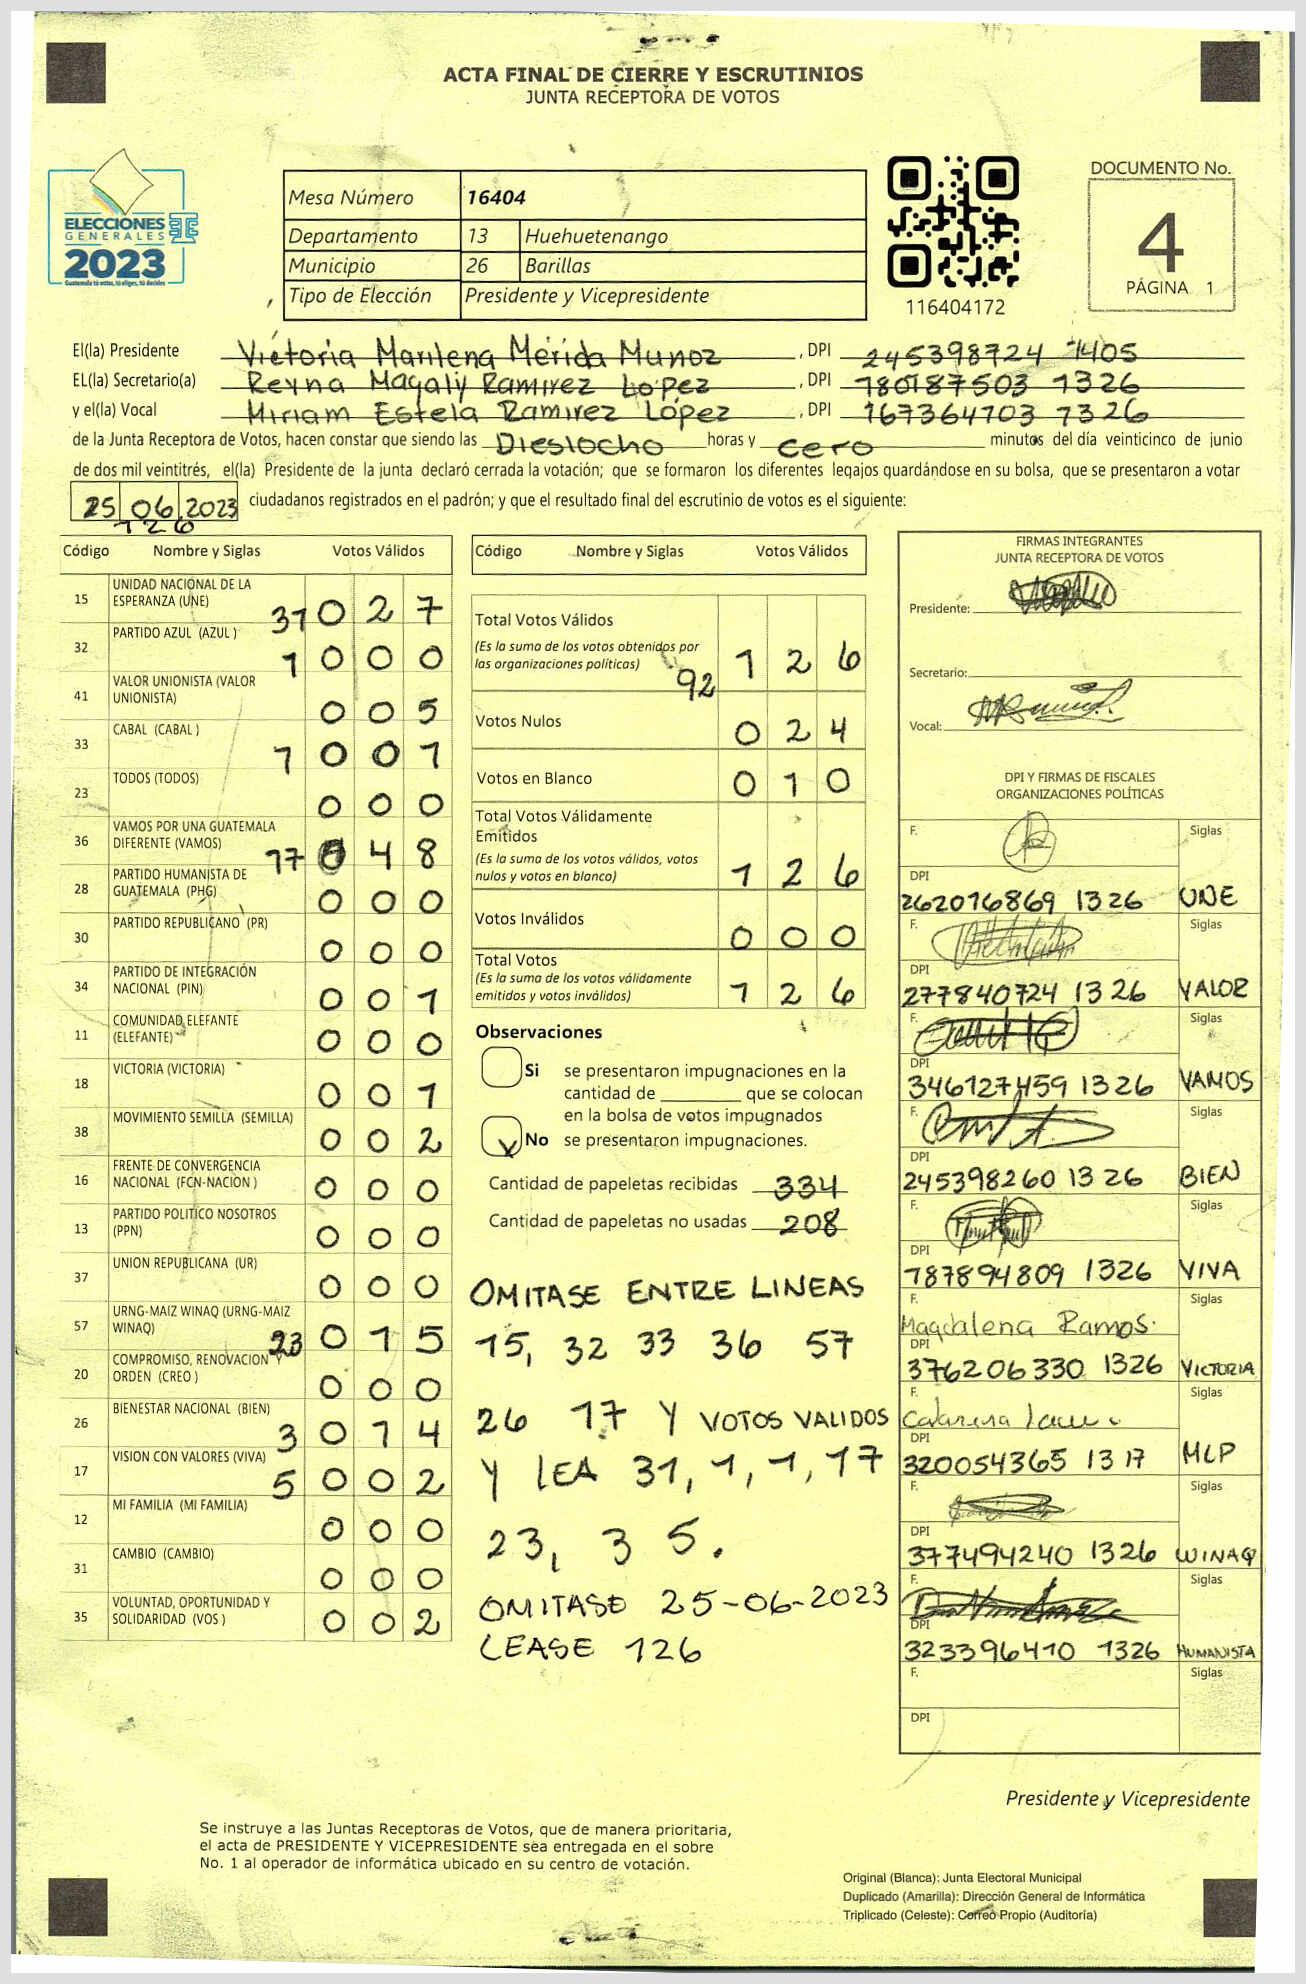 ACTA FINAL DE CIERRE Y ESCRUTINIOS
JUNTA RECEPTORA DE VOTOS
ELECCIONES
GENERALES
2023
Guatemala tú votas, tú eliges, tú decides
Mesa Número 16404
Departamento 13 Huehuetenango
Municipio 26 Barillas
Tipo de Elección Presidente y Vicepresidente
116404172
DOCUMENTO No.
4
PÁGINA 1
El(la) Presidente Victoria Marilena Mérida Munoz, DPI 245398724 1405
EL(la) Secretario(a) Reyna Magaly Ramirez Lopez, DPI 180187503 1326
y el(la) Vocal Miriam Estela Ramirez López, DPI 167364703 1326
de la Junta Receptora de Votos, hacen constar que siendo las Diesiocho horas y cero minutos del día veinticinco de junio
de dos mil veintitrés, el(la) Presidente de la junta declaró cerrada la votación; que se formaron los diferentes legajos guardándose en su bolsa, que se presentaron a votar
25 06 2023 ciudadanos registrados en el padrón; y que el resultado final del escrutinio de votos es el siguiente:
126
Código Nombre y Siglas Votos Válidos
15 UNIDAD NACIONAL DE LA
ESPERANZA (UNE) 31 0 2 7
32 PARTIDO AZUL (AZUL) 1 0 0 0
41 VALOR UNIONISTA (VALOR
UNIONISTA) 0 0 5
33 CABAL (CABAL) 1 0 0 1
23 TODOS (TODOS) 0 0 0
36 VAMOS POR UNA GUATEMALA
DIFERENTE (VAMOS) 17 0 4 8
28 PARTIDO HUMANISTA DE
GUATEMALA (PHG) 0 0 0
30 PARTIDO REPUBLICANO (PR) 0 0 0
34 PARTIDO DE INTEGRACIÓN
NACIONAL (PIN) 0 0 1
11 COMUNIDAD ELEFANTE
(ELEFANTE) 0 0 0
18 VICTORIA (VICTORIA) 0 0 1
38 MOVIMIENTO SEMILLA (SEMILLA) 0 0 2
16 FRENTE DE CONVERGENCIA
NACIONAL (FCN-NACION) 0 0 0
13 PARTIDO POLITICO NOSOTROS
(PPN) 0 0 0
37 UNION REPUBLICANA (UR) 0 0 0
57 URNG-MAIZ WINAQ (URNG-MAIZ
WINAQ) 23 0 1 5
20 COMPROMISO, RENOVACION Y
ORDEN (CREO) 0 0 0
26 BIENESTAR NACIONAL (BIEN) 3 0 1 4
17 VISION CON VALORES (VIVA) 5 0 0 2
12 MI FAMILIA (MI FAMILIA) 0 0 0
31 CAMBIO (CAMBIO) 0 0 0
35 VOLUNTAD, OPORTUNIDAD Y
SOLIDARIDAD (VOS) 0 0 2
Código Nombre y Siglas Votos Válidos
Total Votos Válidos
(Es la suma de los votos obtenidos por
las organizaciones políticas) 92 1 2 6
Votos Nulos 0 2 4
Votos en Blanco 0 1 0
Total Votos Válidamente
Emitidos
(Es la suma de los votos válidos, votos
nulos y votos en blanco) 1 2 6
Votos Inválidos 0 0 0
Total Votos
(Es la suma de los votos válidamente
emitidos y votos inválidos) 1 2 6
Observaciones
Si se presentaron impugnaciones en la
cantidad de ________ que se colocan
en la bolsa de votos impugnados
No se presentaron impugnaciones.
Cantidad de papeletas recibidas 334
Cantidad de papeletas no usadas 208
OMITASE ENTRE LINEAS
15, 32 33 36 57
26 17 Y VOTOS VALIDOS
Y LEA 31, 1, 1, 17
23, 3 5.
OMITASE 25-06-2023
LEASE 126
FIRMAS INTEGRANTES
JUNTA RECEPTORA DE VOTOS
Presidente:
Secretario:
Vocal:
DPI Y FIRMAS DE FISCALES
ORGANIZACIONES POLÍTICAS
F. Siglas
DPI
262016869 1326 UNE
F. Siglas
DPI
277840724 1326 VALOR
F. Siglas
DPI
346127459 1326 VAMOS
F. Siglas
DPI
245398260 1326 BIEN
F. Siglas
DPI
187894809 1326 VIVA
F. Siglas
Magdalena Ramos.
DPI
376206330 1326 VICTORIA
F. Siglas
Catarina
DPI
320054365 1317 MLP
F. Siglas
DPI
377494240 1326 WINAQ
F. Siglas
DPI
323396410 1326 HUMANISTA
F. Siglas
DPI
Presidente y Vicepresidente
Se instruye a las Juntas Receptoras de Votos, que de manera prioritaria,
el acta de PRESIDENTE Y VICEPRESIDENTE sea entregada en el sobre
No. 1 al operador de informática ubicado en su centro de votación.
Original (Blanca): Junta Electoral Municipal
Duplicado (Amarilla): Dirección General de Informática
Triplicado (Celeste): Correo Propio (Auditoría)